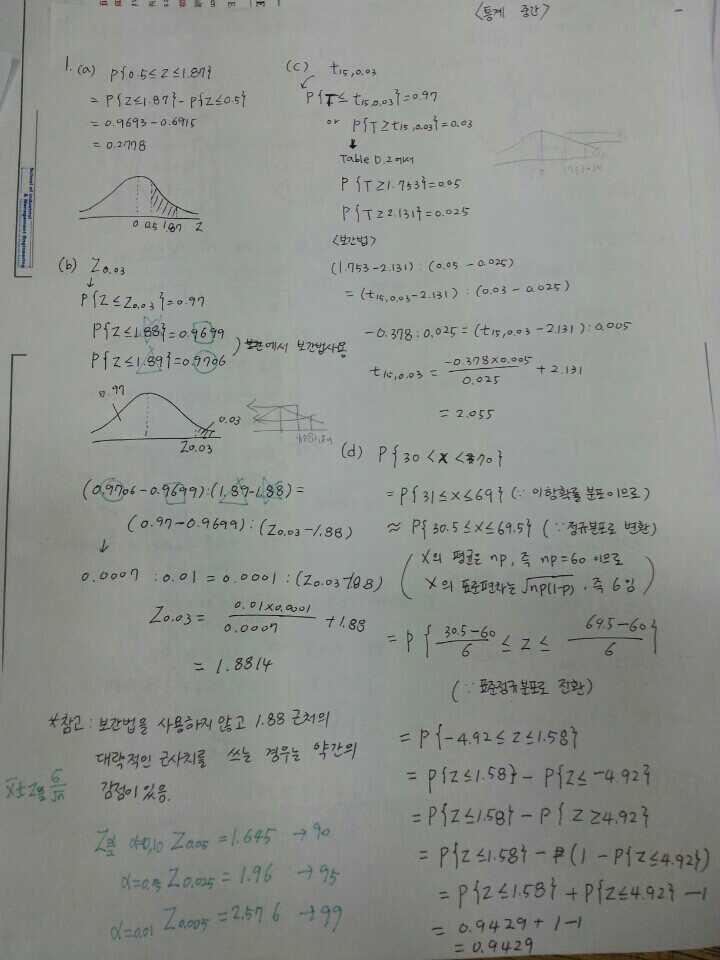 <통계 중간>
1. (a) P{0.5≤Z≤1.87}
= P{Z≤1.87} - P{Z≤0.5}
= 0.9693 - 0.6915
= 0.2778
0 0.5 1.87 Z
(b) Z0.03
↓
P{Z≤Z0.03}=0.97
P{Z≤1.88}=0.9699
P{Z≤1.89}=0.9706
에서 보간법사용
0.97
0.03
Z0.03
(0.9706-0.9699):(1.89-1.88)=
(0.97-0.9699):(Z0.03-1.88)
↓
0.0007 : 0.01 = 0.0001 : (Z0.03-1.88)
Z0.03 = 0.01×0.0001 / 0.0007 + 1.88
= 1.8814
*참고: 보간법을 사용하지 않고 1.88 근처의
대략적인 근사치를 쓰는 경우는 약간의
감점이 있음.
Zα/2 α=0.10 Z0.05 = 1.645 → 90
α=0.05 Z0.025 = 1.96 → 95
α=0.01 Z0.005 = 2.576 → 99
(c) t15,0.03
P{T≤t15,0.03}=0.97
or P{T≥t15,0.03}=0.03
↓
Table D.2에서
P{T≥1.753}=0.05
P{T≥2.131}=0.025
<보간법>
(1.753-2.131):(0.05-0.025)
= (t15,0.03-2.131):(0.03-0.025)
-0.378:0.025 = (t15,0.03-2.131):0.005
t15,0.03 = -0.378×0.005 / 0.025 + 2.131
= 2.055
(d) P{30<X<70}
= P{31≤X≤69} (∵ 이항확률 분포이므로)
≈ P{30.5≤X≤69.5} (∵정규분포로 변환)
(X의 평균은 np, 즉 np=60 이므로
X의 표준편차는 √np(1-p), 즉 6임)
= P{30.5-60 / 6 ≤ Z ≤ 69.5-60 / 6}
(∵ 표준정규분포로 전환)
= P{-4.92≤Z≤1.58}
= P{Z≤1.58} - P{Z≤-4.92}
= P{Z≤1.58} - P{Z≥4.92}
= P{Z≤1.58} - (1 - P{Z≤4.92})
= P{Z≤1.58} + P{Z≤4.92} - 1
= 0.9429 + 1 - 1
= 0.9429